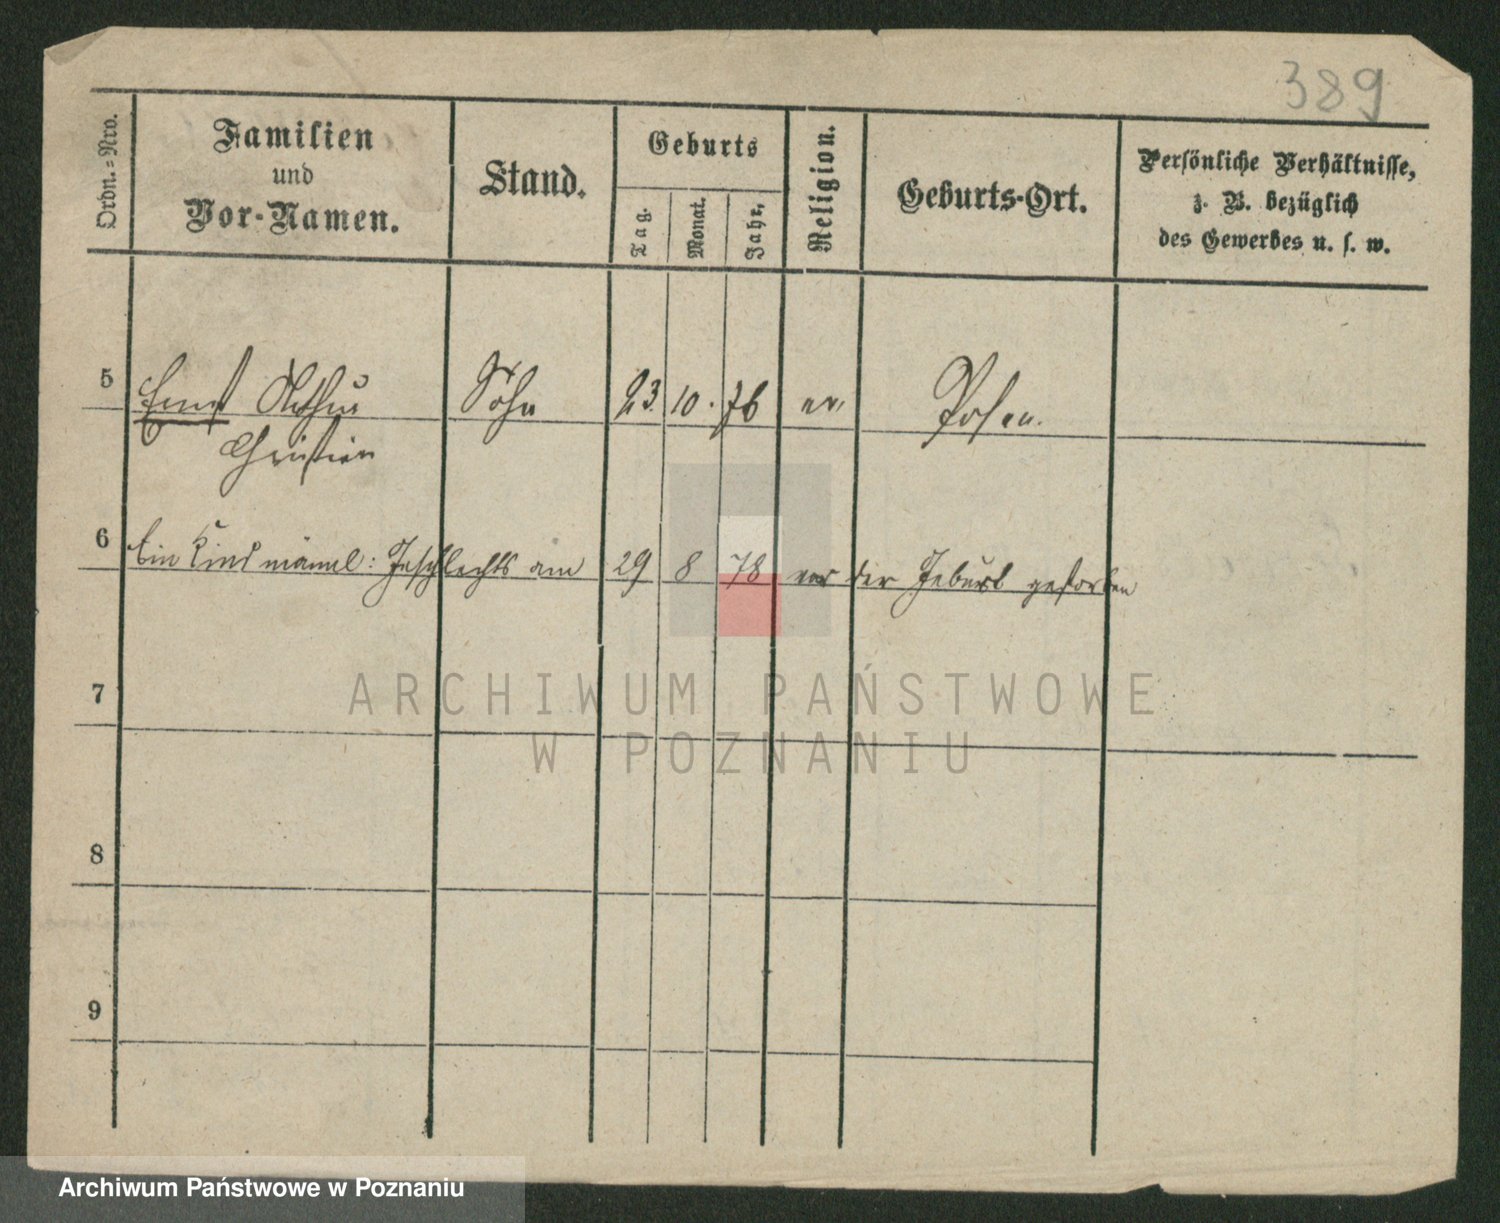 389
Ordn.=Nro.
Familien
und
Vor-Namen.
Stand.
Geburts
Tag.
Monat.
Jahr.
Religion.
Geburts-Ort.
Persönliche Verhältnisse,
z. B. bezüglich
des Gewerbes u. s. w.
5 Ernst Arthur Sohn 23. 10. 76 ev. Posen.
Christian
6 Ein Kind männl: Geschlechts am 29 8 78 vor der Geburt gestorben
7
8
9
ARCHIWUM PAŃSTWOWE
W POZNANIU
Archiwum Państwowe w Poznaniu